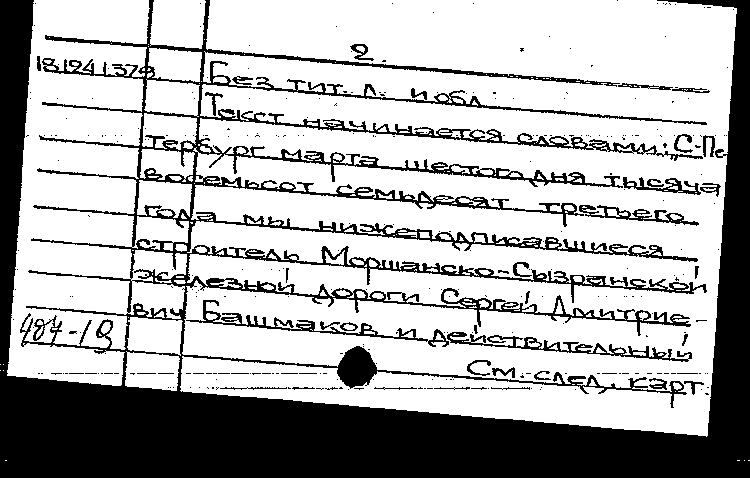 2.
18.124.1.379. Без тит. л. и обл.
Текст начинается словами: „С-Пе-
тербург марта шестого дня тысяча
восемьсот семьдесят третьего
года мы нижеподписавшиеся
строитель Моршанско-Сызранской
железной дороги Сергей Дмитрие-
вич Башмаков и действительный
484-19
См. след. карт.